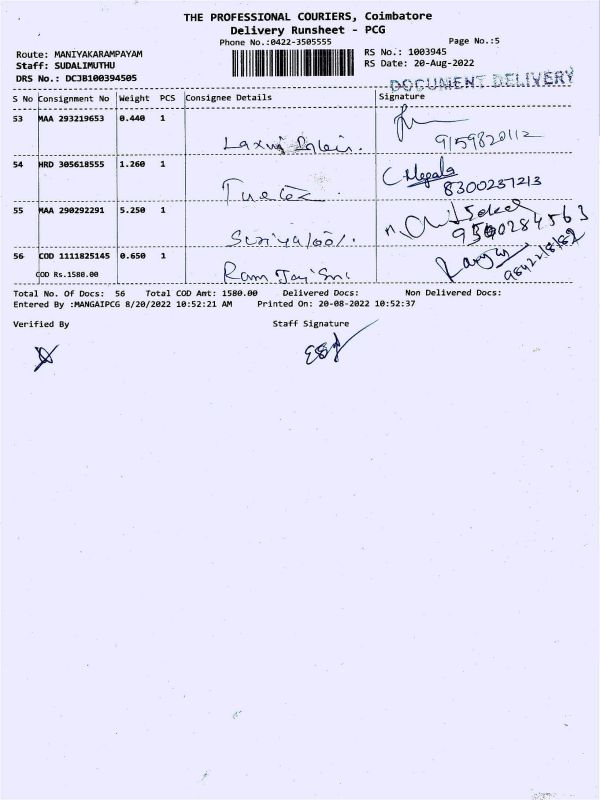 THE PROFESSIONAL COURIERS, Coimbatore
Delivery Runsheet - PCG
Phone No.:0422-3505555
Page No.:5
Route: MANIYAKARAMPAYAM
RS No.: 1003945
Staff: SUDALIMUTHU
RS Date: 20-Aug-2022
DRS No.: DCJB100394505
DOCUMENT DELIVERY
S No Consignment No Weight PCS Consignee Details Signature
53 MAA 293219653 0.440 1
9159820112
54 HRD 305618555 1.260 1
C. Megala
8300237213
55 MAA 290292291 5.250 1
9500284563
56 COD 1111825145 0.650 1
COD Rs.1580.00 Ram Jai Sri
Total No. Of Docs: 56 Total COD Amt: 1580.00 Delivered Docs: Non Delivered Docs:
Entered By :MANGAIPCG 8/20/2022 10:52:21 AM Printed On: 20-08-2022 10:52:37
Verified By Staff Signature